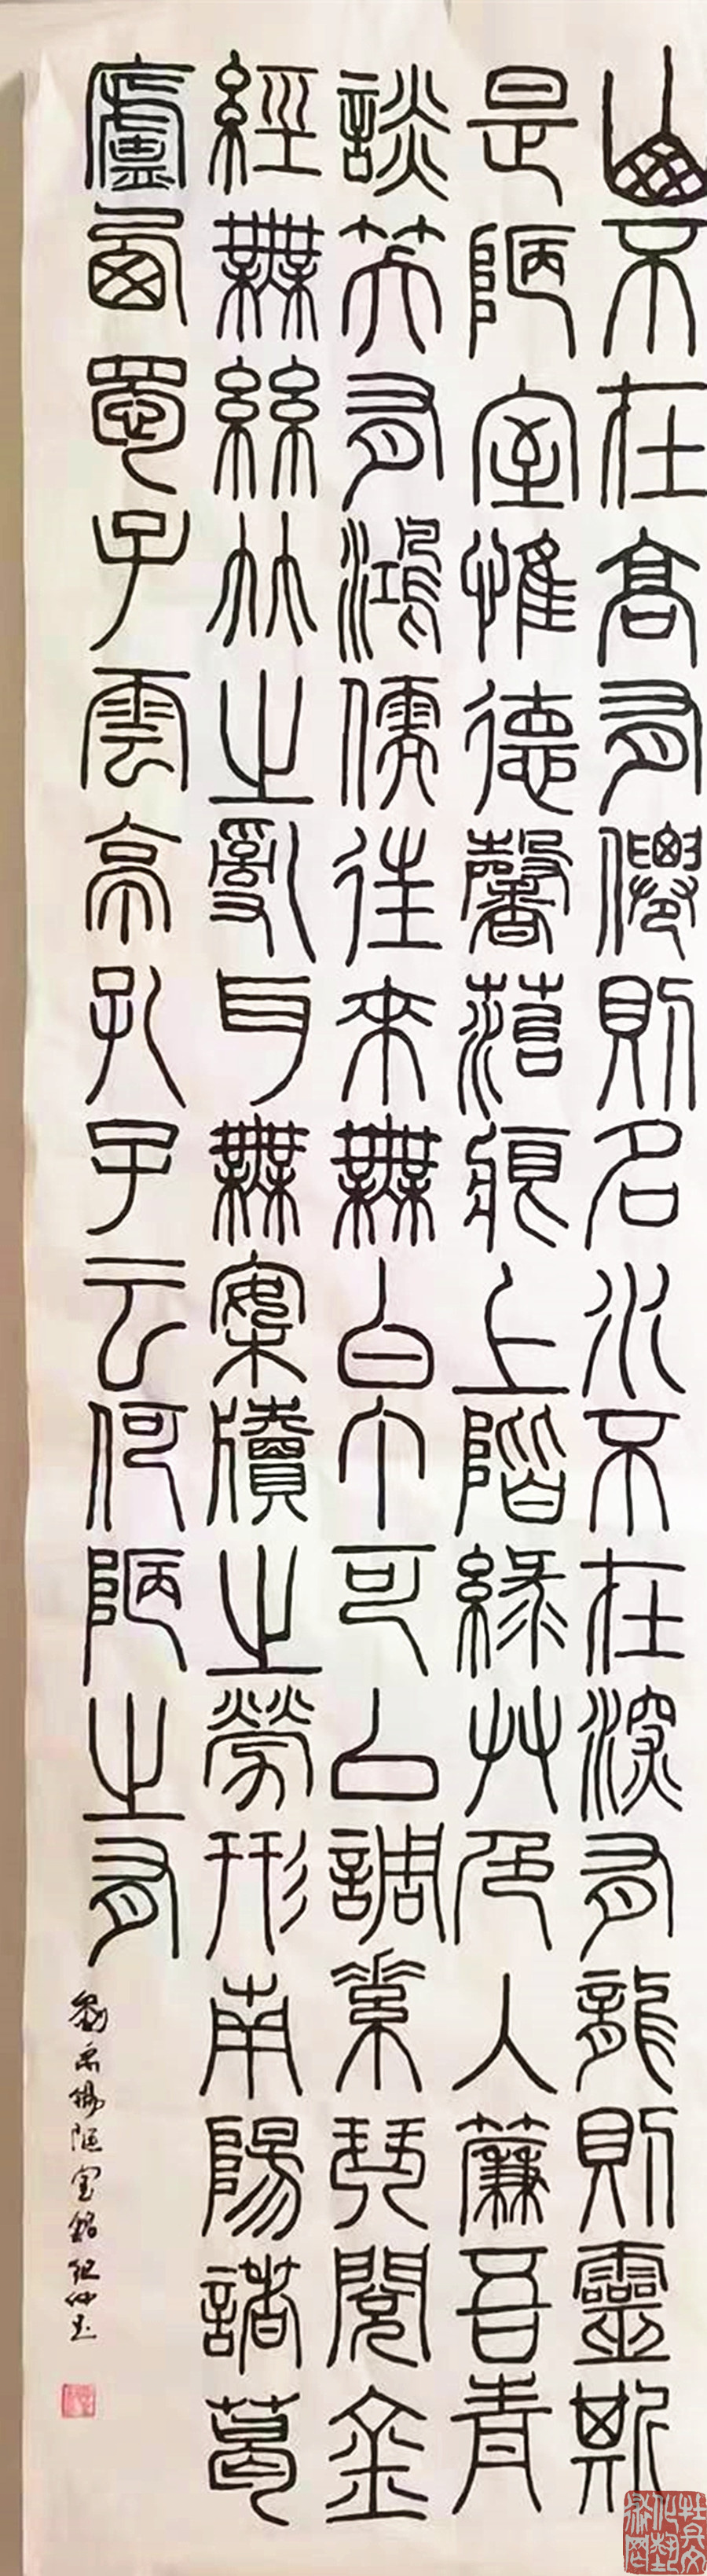 山不在高有僊則名水不在深有龍則靈斯
是陋室惟德馨菭痕上階緑艸色入簾吾青
談笑有鴻儒往來無白丁可以調素琴閱金
經無絲竹之亂耳無案牘之勞形南陽諸葛
廬西蜀子雲亭孔子云何陋之有
劉禹錫陋室銘
牡丹文化藝術網